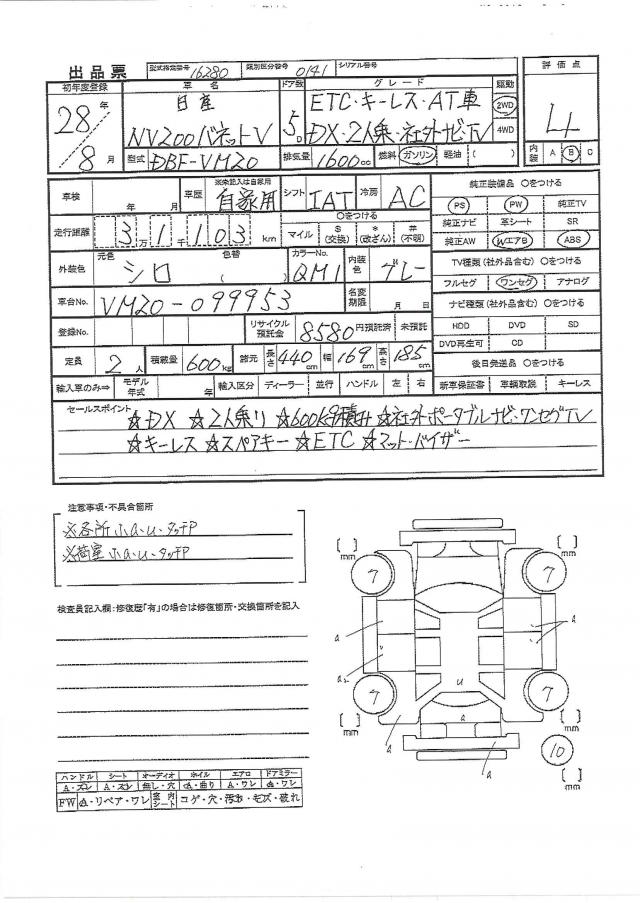 出品票 型式指定番号 16280 類別区分番号 0141 シリアル番号
初年度登録 車名 ドア数 グレード 駆動 評価点
28年 日産 5D ETC・キーレス・AT車 2WD 4
8月 NV200バネットV DX・2人乗・社外ナビTV 4WD
型式 DBF-VM20 排気量 1600cc 燃料 ガソリン 軽油 ( ) 内装 A B C
車検 年 月 車歴 ※未記入は自家用 自家用 シフト IAT 冷房 AC 純正装備品 〇をつける
PS PW 純正TV
走行距離 3万1千103km 〇をつける マイル $(交換) *(改ざん) #(不明) 純正ナビ 革シート SR
純正AW WエアB ABS
外装色 元色 シロ 色替 ( ) カラーNo. QM1 内装色 グレー TV種類(社外品含む) 〇をつける
フルセグ ワンセグ アナログ
車台No. VM20-099953 名変期限 月 日 ナビ種類(社外品含む) 〇をつける
登録No. リサイクル預託金 8580円預託済 未預託 HDD DVD SD
DVD再生可 CD
定員 2人 積載量 600kg 諸元 長さ440cm 幅169cm 高さ185cm 後日発送品 〇をつける
輸入車のみ⇒ モデル年式 年 輸入区分 ディーラー 並行 ハンドル 左 右 新車保証書 車輌取説 キーレス
セールスポイント
☆DX ☆2人乗り ☆600kg積み ☆社外ポータブルナビ・ワンセグTV
☆キーレス ☆スペアキー ☆ETC ☆マット・バイザー
注意事項・不具合箇所
※各所小a・u・タッチP
※荷室小a・u・タッチP
検査員記入欄:修復歴「有」の場合は修復箇所・交換箇所を記入
[ ] mm [ ] mm
7 7
a a
a
a u
7 7
a a
[ ] mm [ ] mm
a a
10
[ ] mm
ハンドル シート オーディオ ホイル エアロ ドアミラー
A・スレ A・スレ 無し・穴 a・曲り A・ワレ a・ワレ
FW a・リペア・ワレ 室内シート コゲ・穴・汚れ・キズ・破れ